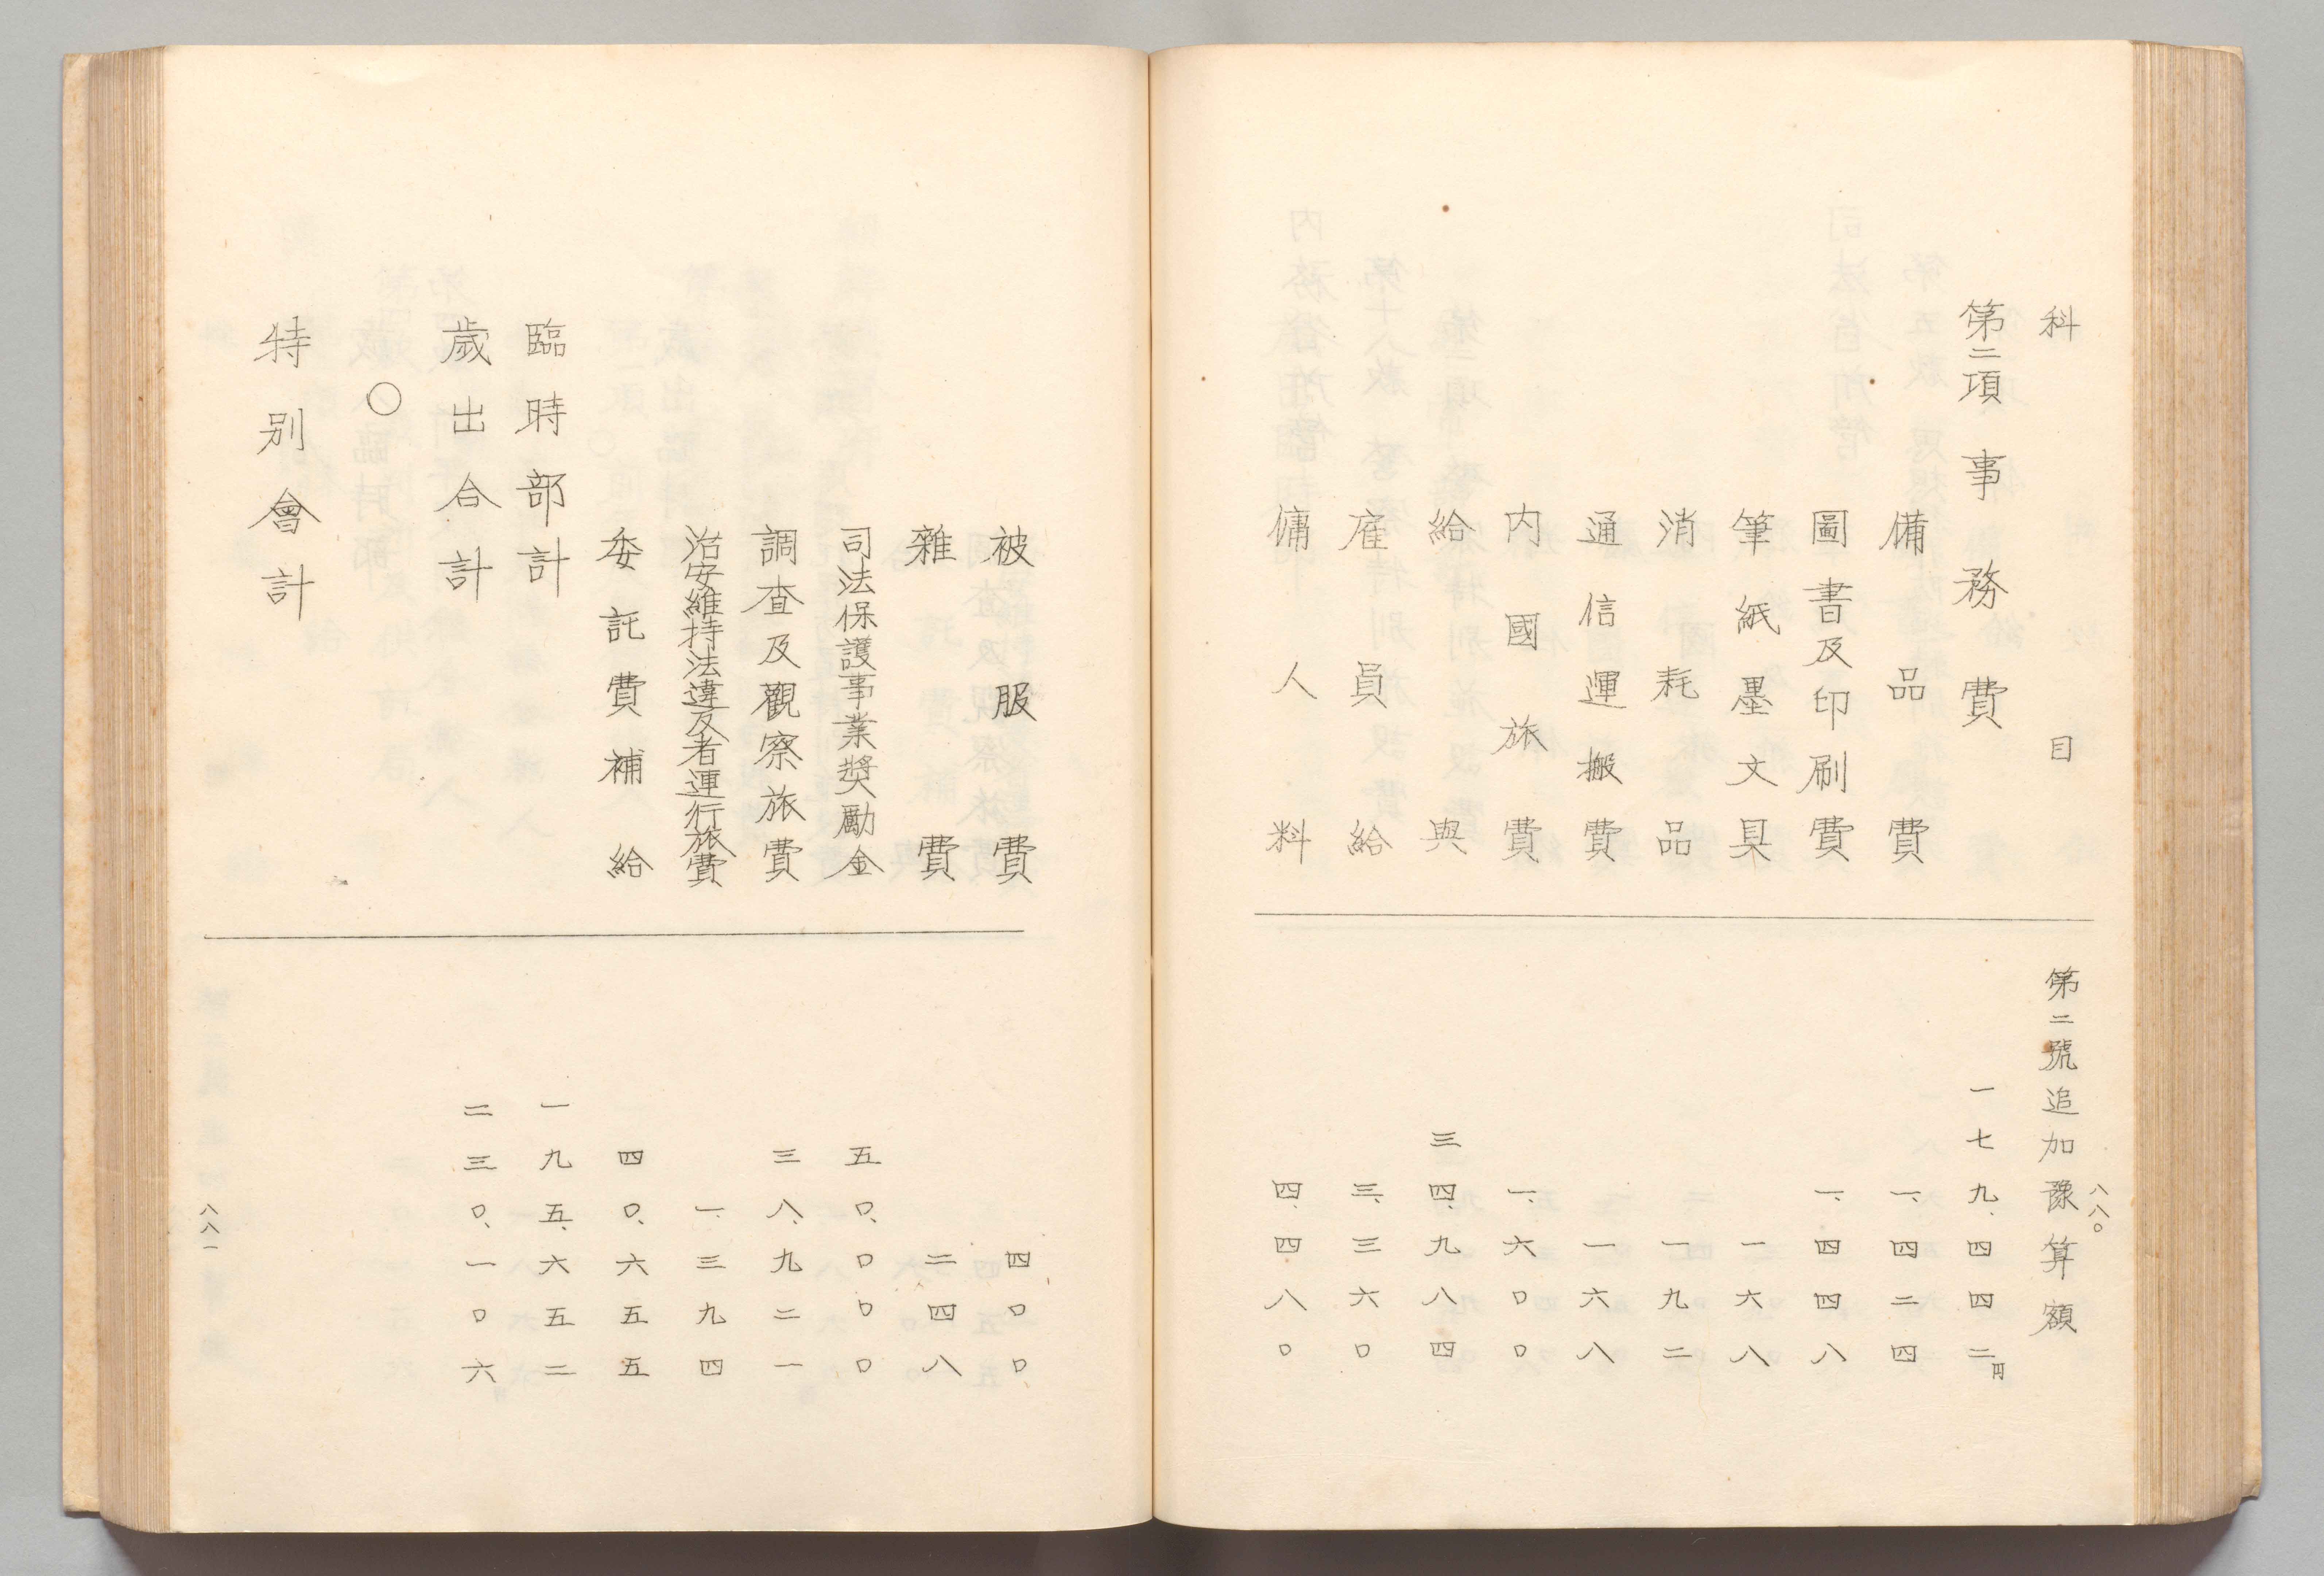 八八〇
科目 第二號追加豫算額
第二項 事務費 一七九、四四二円
備品費 一、四二四
圖書及印刷費 一、四四八
筆紙墨文具 一六八
消耗品 一九二
通信運搬費 一六八
内國旅費 一、六〇〇
給與 三四、九八四
雇員給 三、三六〇
傭人料 四、四八〇
被服費 四〇〇
雜費 二四八
司法保護事業奬勵金 五〇、〇〇〇
調査及觀察旅費 三八、九二一
治安維持法違反者運行旅費 一、三九四
委託費補給 四〇、六五五
臨時部計 一九五、六五二
歳出合計 二三〇、一〇六
〇
特別會計
八八一